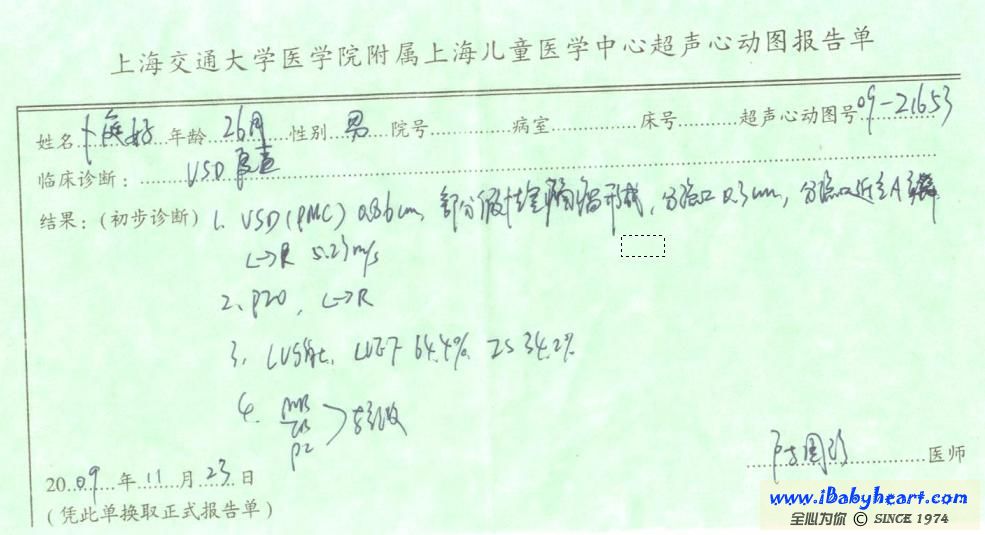 上海交通大学医学院附属上海儿童医学中心超声心动图报告单
姓名 年龄 26月 性别 男 院号 病室 床号 超声心动图号 09-21653
临床诊断: VSD 复查
结果:(初步诊断) 1. VSD(PMC) 0.86cm, 部分假性室隔瘤形成, 分流口 0.3cm, 分流口近主A瓣
L→R 5.23m/s
2、PFO, L→R
3. LVEF 64.4% FS 34.2%
4. MR
TR
20 09 年 11 月 23 日
医师
(凭此单换取正式报告单)
www.iBabyheart.com
全心为你 © SINCE 1974